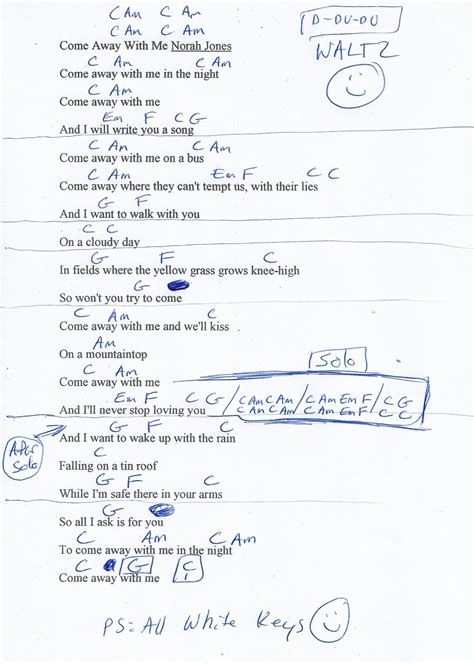 C Am C Am
C Am C Am
D-DU-DU
WALTZ
Come Away With Me Norah Jones
C Am C Am
Come away with me in the night
C Am
Come away with me
Em F C G
And I will write you a song
C Am C Am
Come away with me on a bus
C Am Em F C C
Come away where they can't tempt us, with their lies
G F
And I want to walk with you
C C
On a cloudy day
G F C
In fields where the yellow grass grows knee-high
G
So won't you try to come
C Am C
Come away with me and we'll kiss
Am
On a mountaintop
Solo
C Am
Come away with me
Em F C G / C Am C Am / C Am Em F / C G
C Am C Am C Am Em F C C
And I'll never stop loving you
After Solo
G F C
And I want to wake up with the rain
C
Falling on a tin roof
G F C
While I'm safe there in your arms
G
So all I ask is for you
C Am C Am
To come away with me in the night
C G C
Come away with me
PS: All White Keys